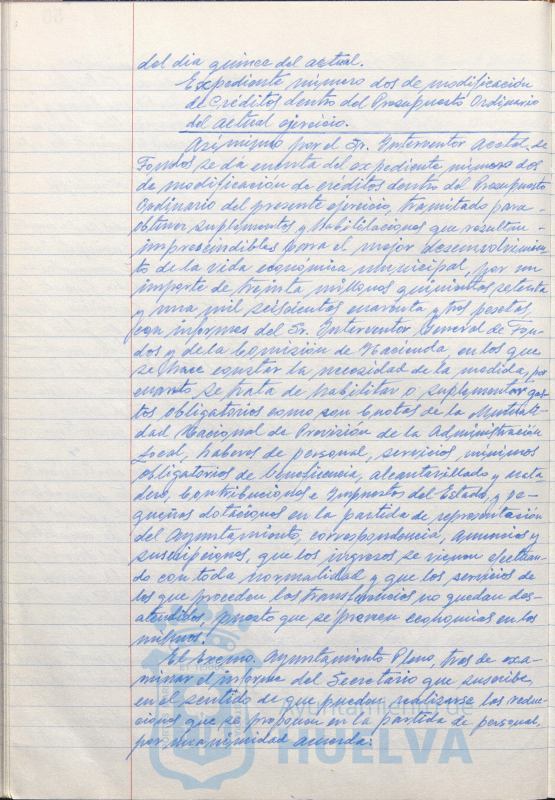 del dia quince del actual.
Expediente número dos de modificación
de Créditos dentro del Presupuesto Ordinario
del actual ejercicio.
Asimismo por el Sr. Interventor Acctal. de
Fondos se da cuenta del expediente número dos
de modificación de créditos dentro del Presupuesto
Ordinario del presente ejercicio, tramitado para
obtener suplementos y habilitaciones que resultan
imprescindibles para el mejor desenvolvimien-
to de la vida económica municipal, por un
importe de treinta millones quinientas setenta
y una mil seiscientas cuarenta y tres pesetas,
con informes del Sr. Interventor General de Fon-
dos y de la Comisión de Hacienda, en los que
se hace constar la necesidad de la medida, por
cuanto se trata de habilitar o suplementar gas-
tos obligatorios como son Cuotas de la Mutuali-
dad Nacional de Previsión de la Administración
Local, haberes de personal, servicios mínimos
obligatorios de beneficencia, alcantarillado y mata
dero, Contribuciones e Impuestos del Estado, y pe-
queñas dotaciones en la partida de representación
del Ayuntamiento, correspondencia, anuncios y
suscripciones, que los ingresos se vienen efectuan-
do con toda normalidad y que los servicios de
los que proceden las transferencias no quedan des-
atendidos, puesto que se preveen economías en los
mismos.
El Excmo. Ayuntamiento Pleno, tras de exa-
minar el informe del Secretario que suscribe,
en el sentido de que puedan realizarse las reduc-
ciones que se proponen en la partida de personal,
por unanimidad acuerda:
Ayuntamiento de
HUELVA